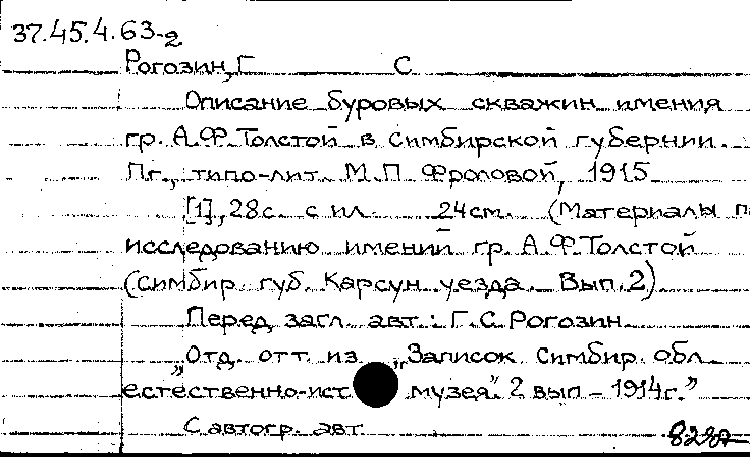 37.45.4.63-2
Рогозин, Г С
Описание буровых скважин имения
гр. А.Ф. Толстой в Симбирской губернии.
Пг., типо-лит. М.П. Фроловой, 1915
[1], 28с. с ил. 24см. (Материалы п
исследованию имений гр. А.Ф. Толстой
(Симбир. губ. Карсун. уезда. Вып. 2)
Перед загл. авт.: Г.С. Рогозин.
„Отд. отт. из „Записок Симбир. обл.
естественно-ист. музея". 2 вып - 1914г."
С автогр. авт.